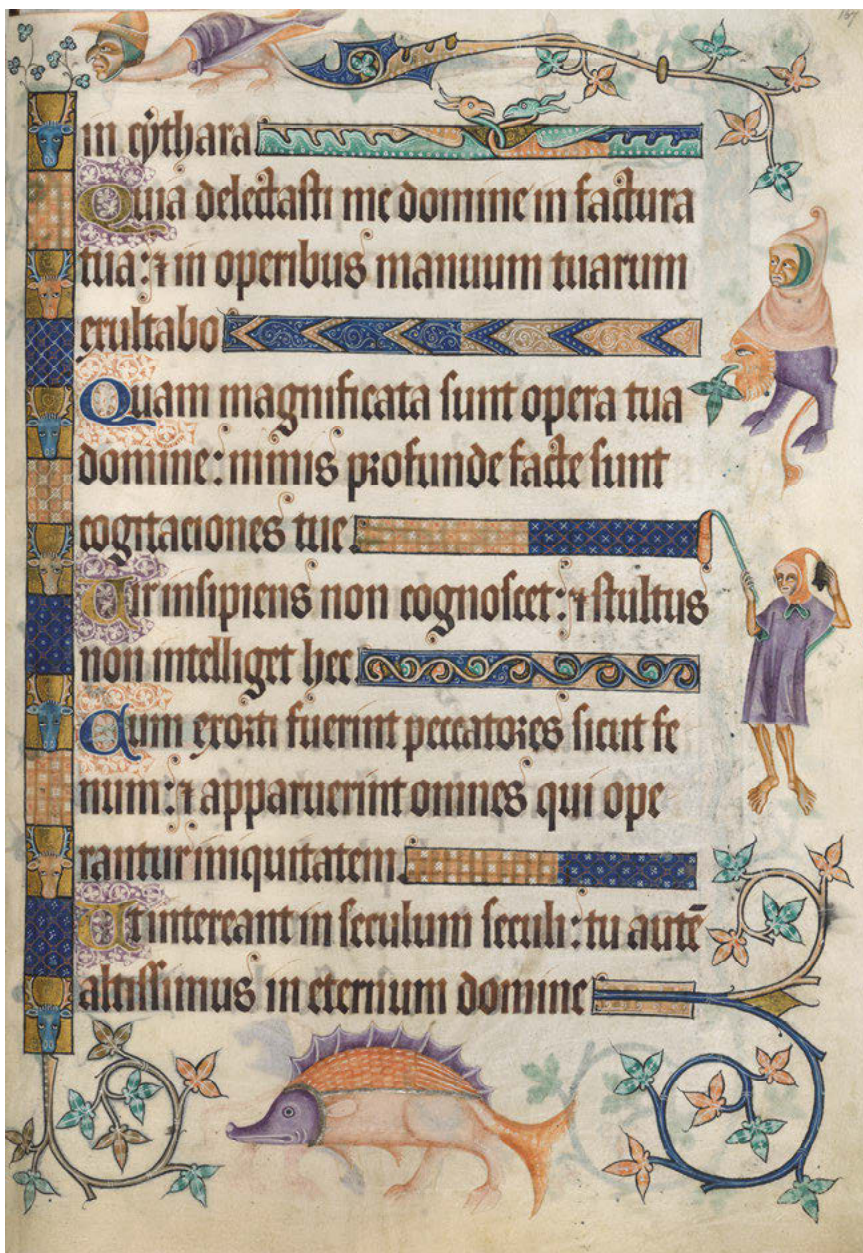 in cythara
Quia delectasti me domine in factura
tua: ⁊ in operibus manuum tuarum
exultabo
Quam magnificata sunt opera tua
domine: nimis profunde facte sunt
cogitaciones tue
Vir insipiens non cognoscet: ⁊ stultus
non intelliget hec
Cum exorti fuerint peccatores sicut fe
num: ⁊ apparuerint omnes qui ope
rantur iniquitatem
Ut intereant in seculum seculi: tu autē
altissimus in eternum domine